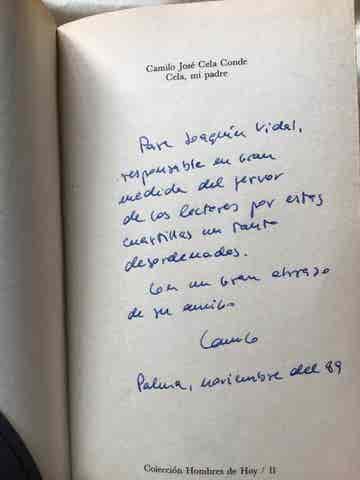 Camilo José Cela Conde
Cela, mi padre
Para Joaquín Vidal,
responsable en gran
medida del fervor
de los lectores por estas
cuartillas un tanto
desordenadas.
Con un gran abrazo
de su amigo
Camilo
Palma, noviembre del 89
Colección Hombres de Hoy / 11